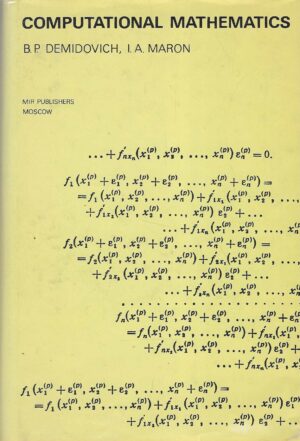 COMPUTATIONAL MATHEMATICS
B.P. DEMIDOVICH, I.A. MARON
MIR PUBLISHERS
MOSCOW
... + f′ₙₓₙ (x₁⁽ᵖ⁾, x₂⁽ᵖ⁾, ..., xₙ⁽ᵖ⁾) εₙ⁽ᵖ⁾ = 0.
f₁ (x₁⁽ᵖ⁾ + ε₁⁽ᵖ⁾, x₂⁽ᵖ⁾ + ε₂⁽ᵖ⁾, ..., xₙ⁽ᵖ⁾ + εₙ⁽ᵖ⁾) =
= f₁ (x₁⁽ᵖ⁾, x₂⁽ᵖ⁾, ..., xₙ⁽ᵖ⁾) + f′₁ₓ₁ (x₁⁽ᵖ⁾, x₂⁽ᵖ⁾, ...,
+ f′₁ₓ₂ (x₁⁽ᵖ⁾, x₂⁽ᵖ⁾, ..., xₙ⁽ᵖ⁾) ε₂⁽ᵖ⁾ + ...
... + f′₁ₓₙ (x₁⁽ᵖ⁾, x₂⁽ᵖ⁾, ..., xₙ
f₂ (x₁⁽ᵖ⁾ + ε₁⁽ᵖ⁾, x₂⁽ᵖ⁾ + ε₂⁽ᵖ⁾, ..., xₙ⁽ᵖ⁾ + εₙ⁽ᵖ⁾) =
= f₂ (x₁⁽ᵖ⁾, x₂⁽ᵖ⁾, ..., xₙ⁽ᵖ⁾) + f′₂ₓ₁ (x₁⁽ᵖ⁾, x₂⁽ᵖ⁾, ...,
+ f′₂ₓ₂ (x₁⁽ᵖ⁾, x₂⁽ᵖ⁾, ..., xₙ⁽ᵖ⁾) ε₂⁽ᵖ⁾ + ...
... + f′₂ₓₙ (x₁⁽ᵖ⁾, x₂⁽ᵖ⁾, ..., x
. . . . . . . . . . . . . . . . . . . .
fₙ (x₁⁽ᵖ⁾ + ε₁⁽ᵖ⁾, x₂⁽ᵖ⁾ + ε₂⁽ᵖ⁾, ..., xₙ⁽ᵖ⁾ + εₙ
= fₙ (x₁⁽ᵖ⁾, x₂⁽ᵖ⁾, ..., xₙ⁽ᵖ⁾) + f′ₙₓ₁ (x₁
+ f′ₙₓ₂ (x₁⁽ᵖ⁾, x₂⁽ᵖ⁾, ..., xₙ⁽ᵖ⁾) ε₂⁽ᵖ⁾
... + f′ₙₓₙ (x₁⁽ᵖ⁾,
f₁ (x₁⁽ᵖ⁾ + ε₁⁽ᵖ⁾, x₂⁽ᵖ⁾ + ε₂⁽ᵖ⁾, ..., xₙ⁽ᵖ⁾ + εₙ⁽ᵖ⁾) =
= f₁ (x₁⁽ᵖ⁾, x₂⁽ᵖ⁾, ..., xₙ⁽ᵖ⁾) + f′₁ₓ₁ (x₁⁽ᵖ⁾, x₂⁽ᵖ⁾, ..., xₙ⁽ᵖ⁾) ε₁⁽ᵖ⁾
+ f′₁ₓ₂ (x₁⁽ᵖ⁾, x₂⁽ᵖ⁾, ..., xₙ⁽ᵖ⁾) ε₂⁽ᵖ⁾ + ...